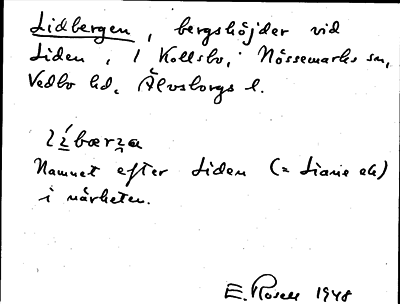 Lidbergen, bergshöjder vid
Liden, i Kollsbo, Nössemarks sn,
Vedbo hd. Älvsborgs l.
Namnet efter Liden (= Liane ek)
i närheten.
E. Rosell 1948